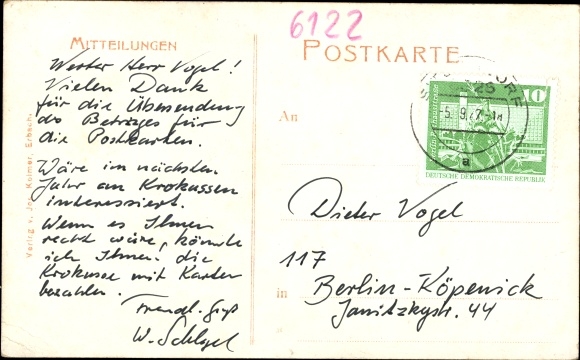 6122
MITTEILUNGEN
POSTKARTE
Werter Herr Vogel!
Vielen Dank
für die Übersendung
des Betrages für
die Postkarten.
Wäre im nächsten
Jahr an Krokussen
interessiert.
Wenn es Ihnen
recht wäre, könnte
ich Ihnen die
Krokusse mit Karten
bezahlen.
Frendl. Gruß
W. Schlegel
Verlag v. Jos. Kolmer, Erbach.
10
DEUTSCHE DEMOKRATISCHE REPUBLIK
-5. 9. 77-18
a
An
Dieter Vogel
117
in Berlin-Köpenick
Janitzkystr. 44